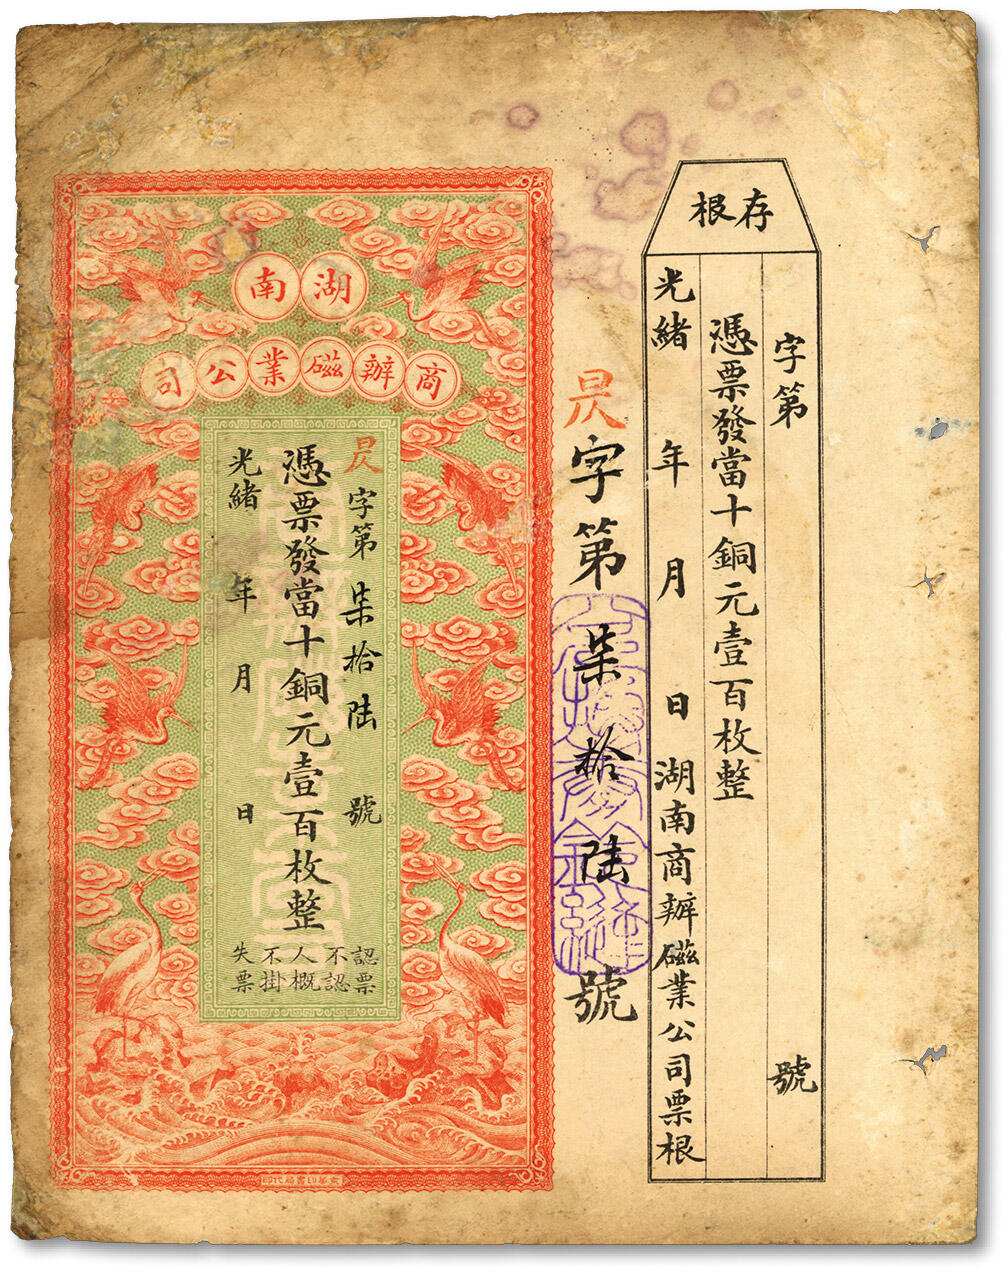 存根
字第 號
憑票發當十銅元壹百枚整
光緒 年 月 日 湖南商辦磁業公司票根
昃字第柒拾陸號
湖南
商辦磁業公司
昃字第柒拾陸號
憑票發當十銅元壹百枚整
光緒 年 月 日
認票
不認
人概
不掛
失票
華印書局代印